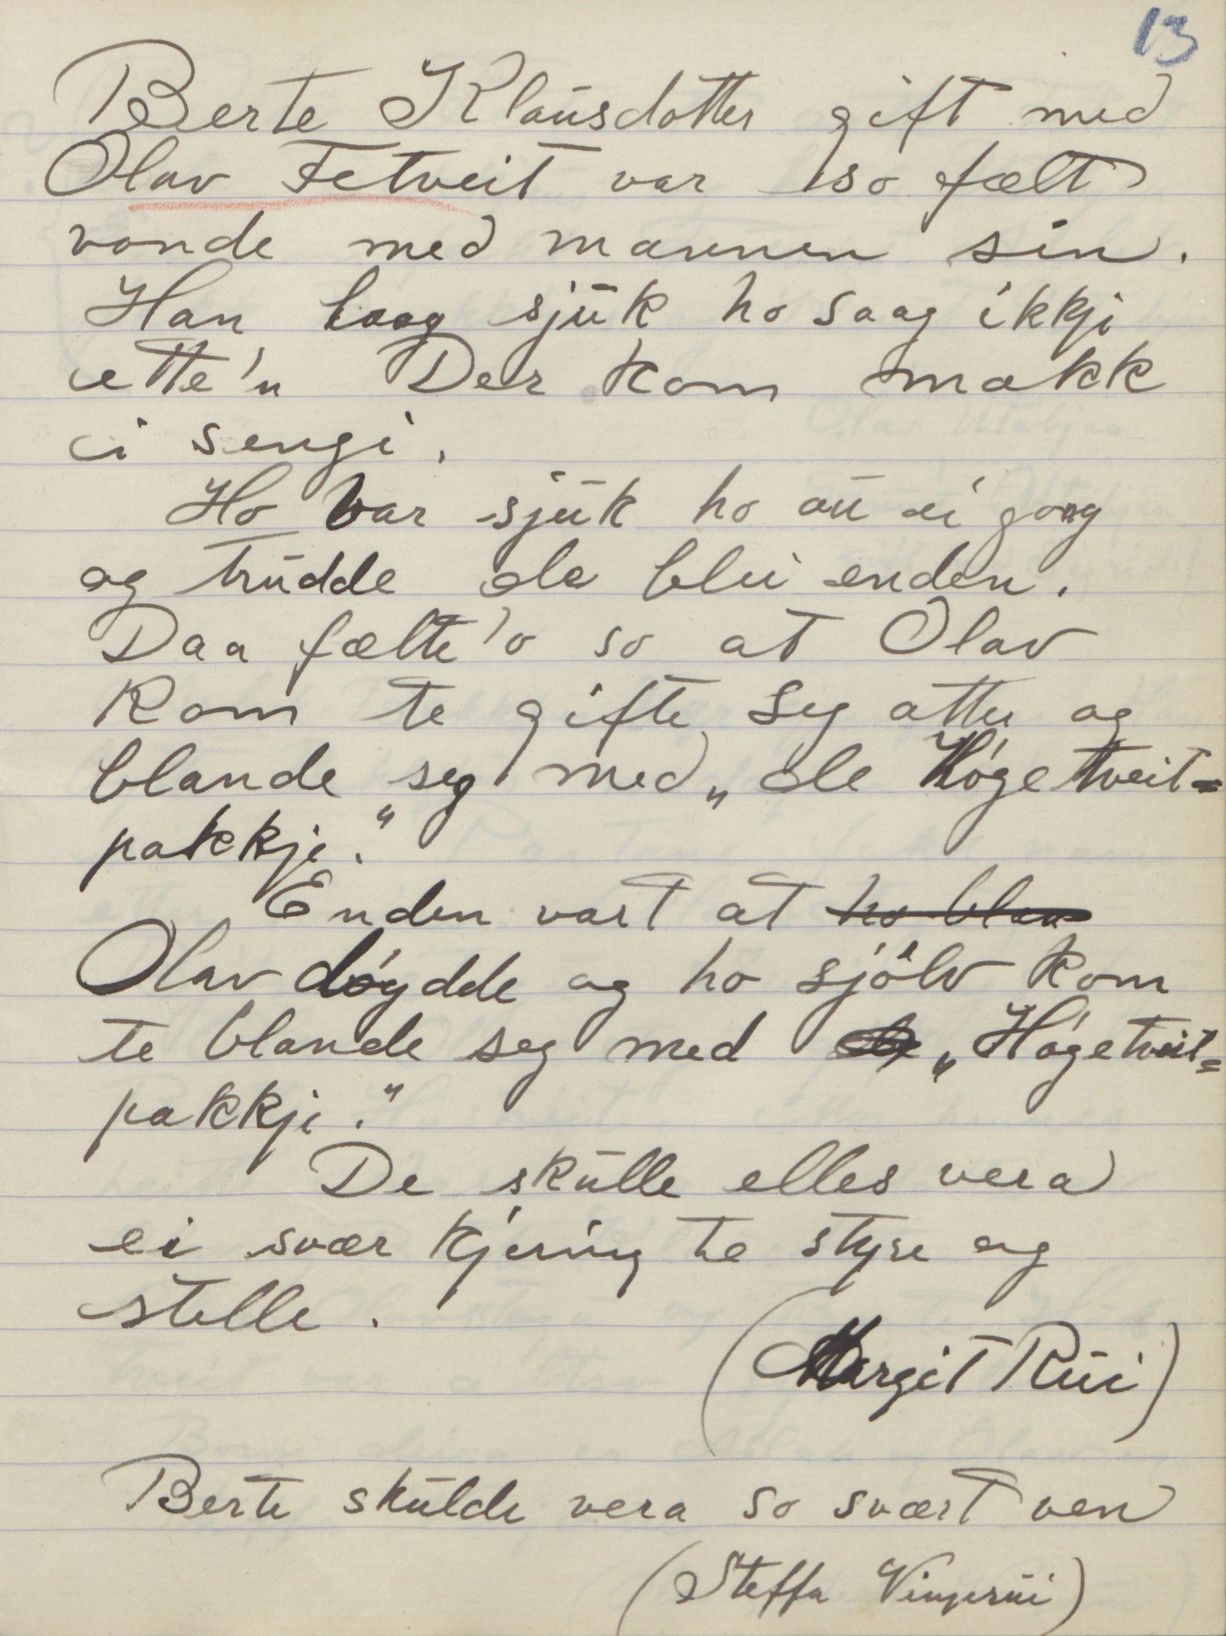 13
Berte Klausdotter gift med
Olav Fetveit var so fælt
vonde med mannen sin.
Han laag sjuk ho saag ikkji
ette'n Der kom makk
i sengi.
Ho var sjuk ho au ei gong
og trudde de blei enden.
Daa fælte'o so at Olav
kom te gifte seg atter og
blande seg med „de Høgetveit=
pakkji."
Enden vart at ho blan
Olav døydde og ho sjølv kom
te blande seg med de „Høgetveit=
pakkji."
De skulle elles vera
ei svær kjering te styre og
stelle.
(Margit Rui)
Berte skulde vera so svært ven
(Steffa Vingerui)